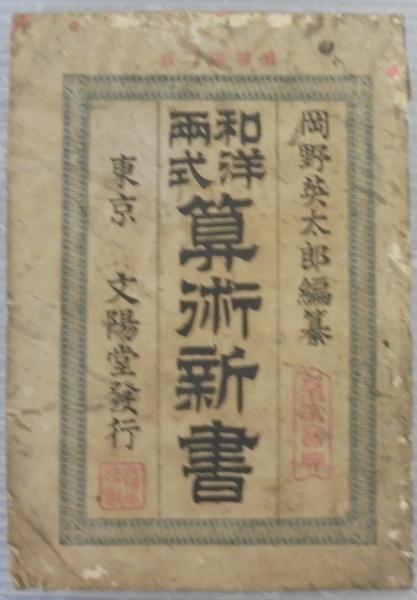 岡野英太郎編纂
和洋
兩式
算術新書
東京 文陽堂發行